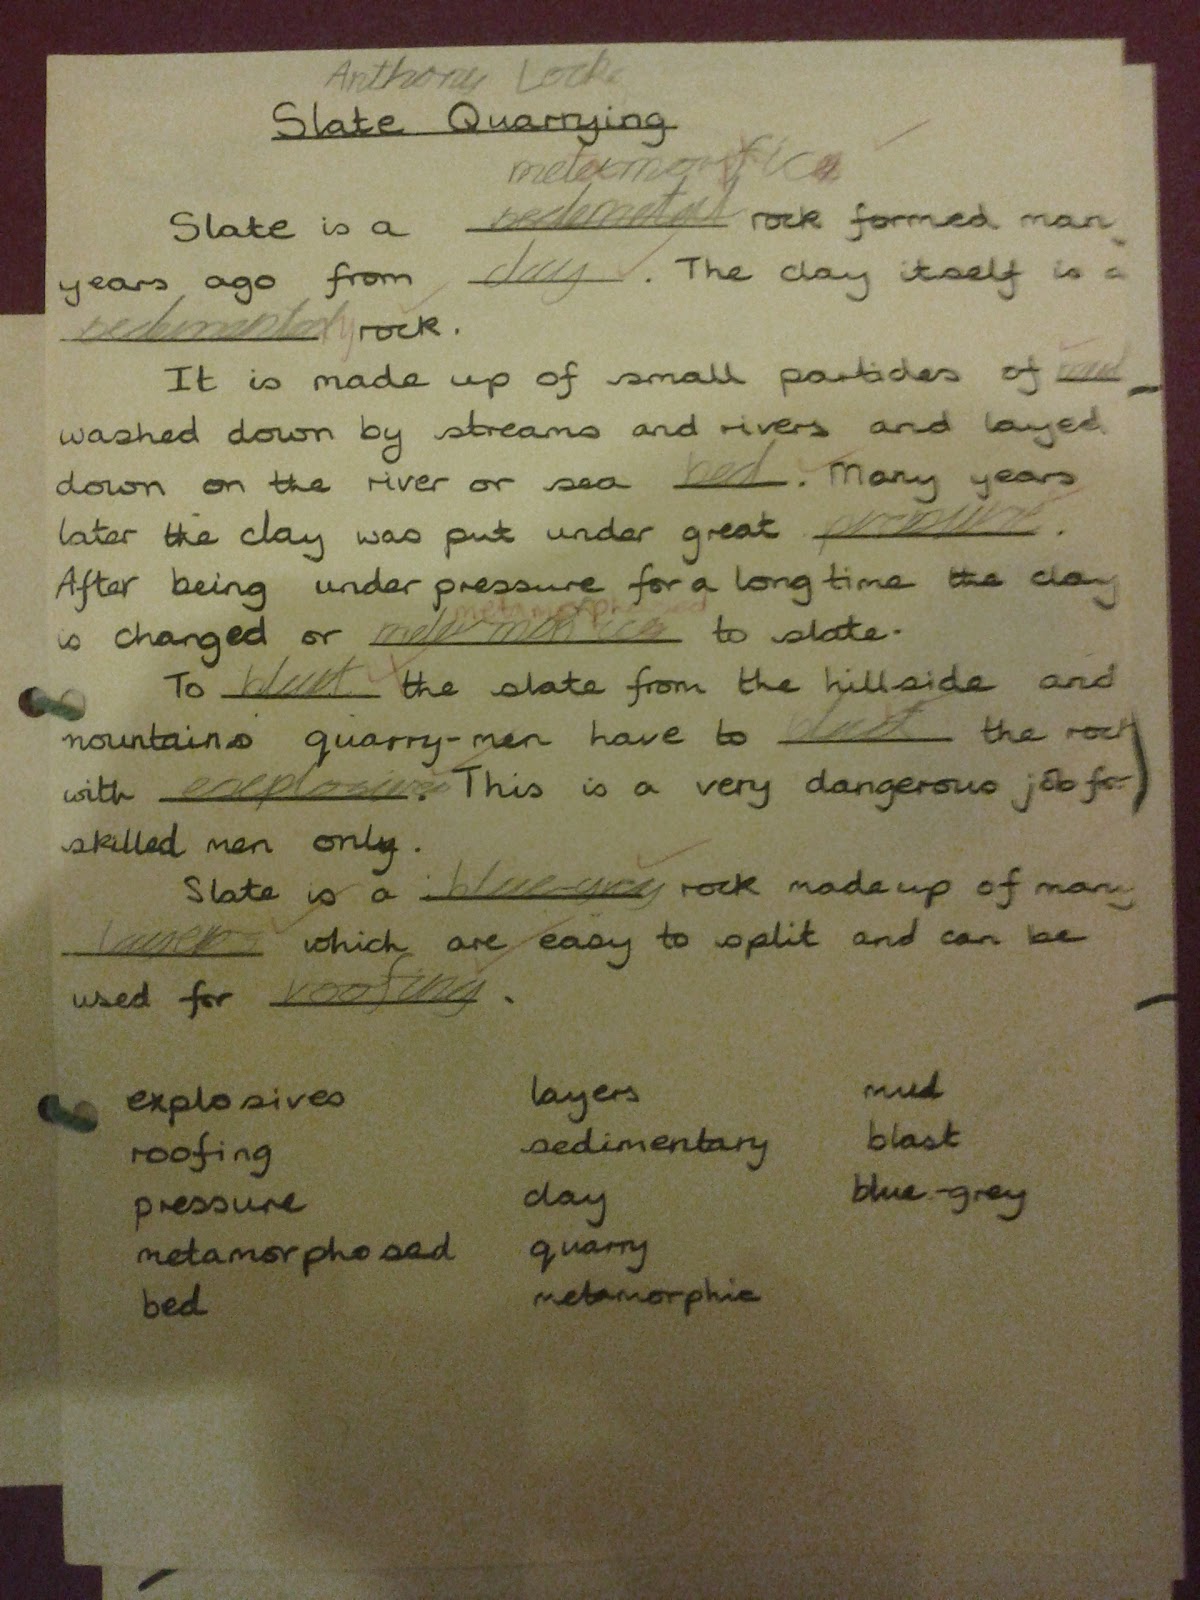 Anthony Locke
Slate Quarrying
Slate is a rock formed man
years ago from clay. The clay itself is a
rock.
It is made up of small particles of mud
washed down by streams and rivers and layed
down on the river or sea bed. Many years
later the clay was put under great pressure.
After being under pressure for a long time the clay
metamorphosed
is changed or to slate.
To blast the slate from the hillside and
mountains quarry-men have to blast the rock
with . This is a very dangerous job for
skilled men only.
Slate is a blue-grey rock made up of many
layers which are easy to split and can be
used for roofing.
explosives layers mud
roofing sedimentary blast
pressure clay blue-grey
metamorphosed quarry
bed metamorphic